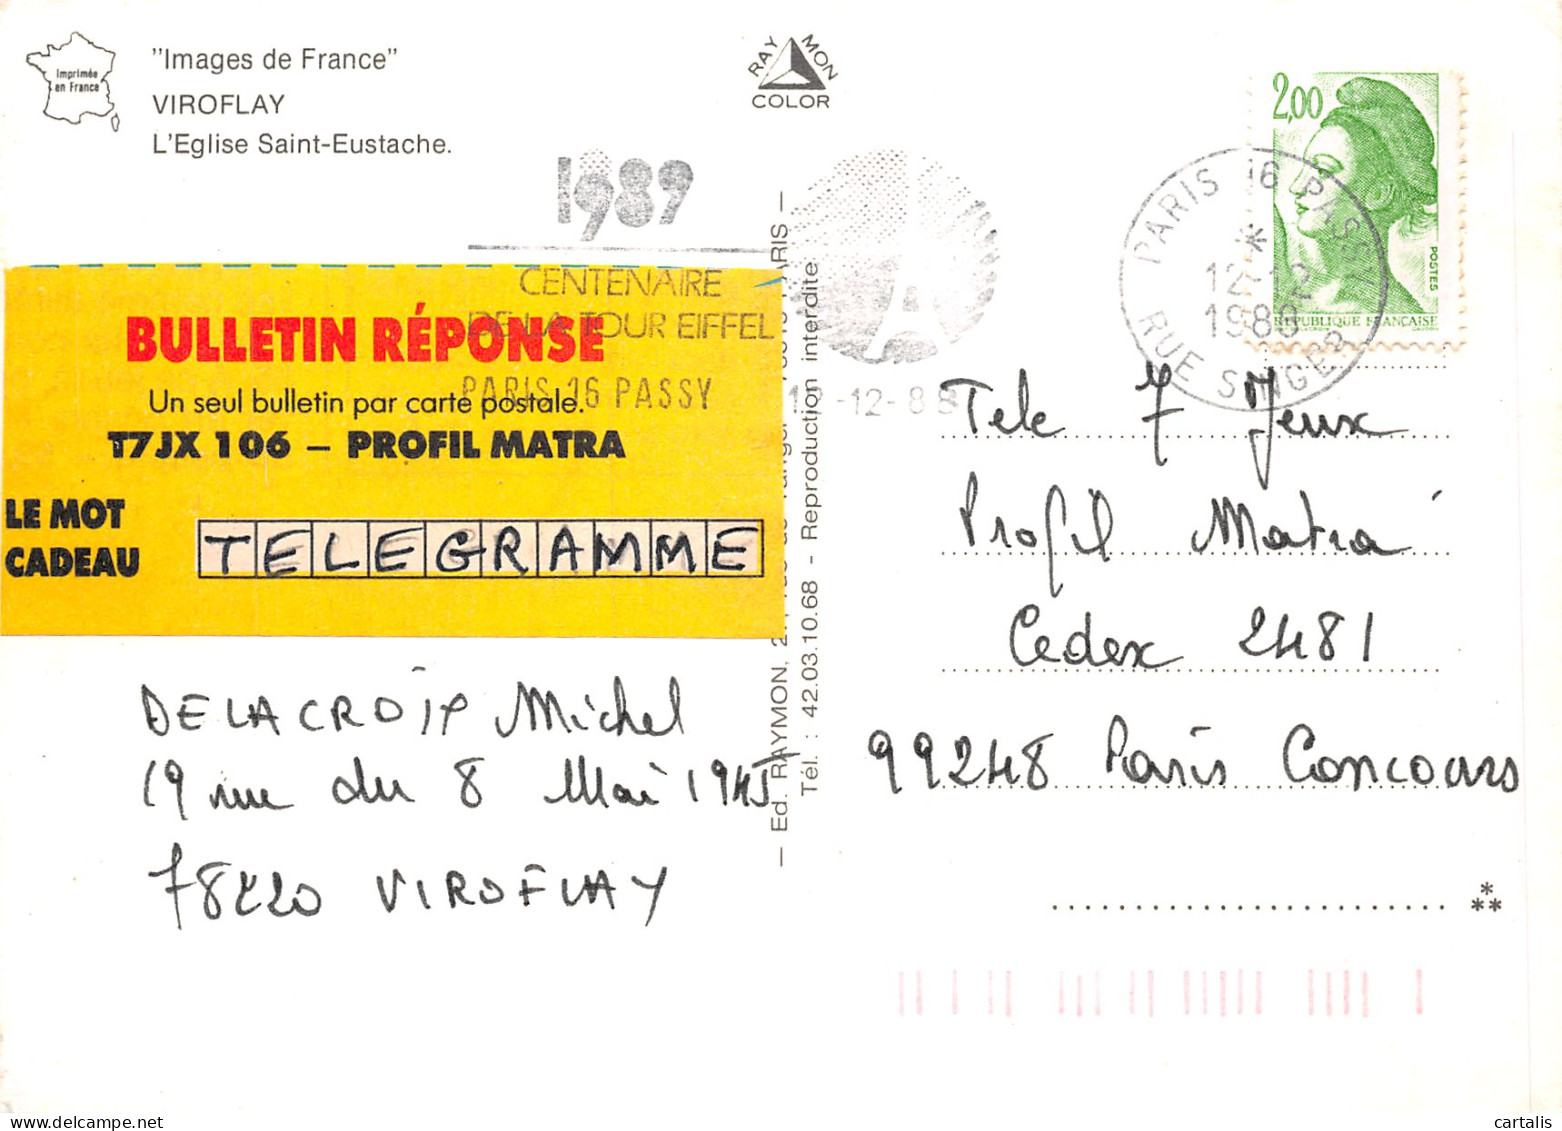 Imprimée
en France
"Images de France"
VIROFLAY
L'Eglise Saint-Eustache.
RAY MON
COLOR
2,00
POSTES
REPUBLIQUE FRANÇAISE
PARIS 16 PASSY
*
12-12
1988
RUE SINGER
1989
CENTENAIRE
DE LA TOUR EIFFEL
PARIS 16 PASSY
12-12-88
BULLETIN RÉPONSE
Un seul bulletin par carte postale.
T7JX 106 – PROFIL MATRA
LE MOT
CADEAU
TELEGRAMME
DELACROIX Michel
19 rue du 8 Mai 1945
78220 VIROFLAY
— Ed. RAYMON, PARIS —
Tél. : 42.03.10.68 - Reproduction interdite
Tele 7 Jeux
Profil Matra
Cedex 2481
99248 Paris Concours
cartalis